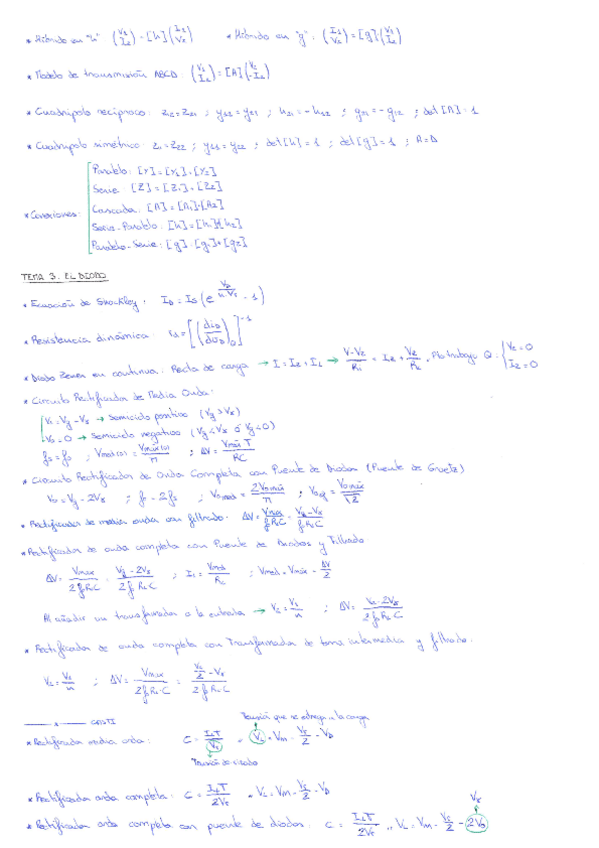 * Híbrido en "h" (V₁ I₂) = [h] (I₁ V₂)   * Híbrido en "g": (I₁ V₂) = [g] (V₁ I₂)
* Modelo de transmisión ABCD: (V₁ I₁) = [A] (V₂ -I₂)
* Cuadripolo recíproco: z₁₂=z₂₁ ; y₁₂=y₂₁ ; h₂₁=-h₁₂ ; g₂₁=-g₁₂ ; det[A]=1
* Cuadripolo simétrico: z₁₁=z₂₂ ; y₁₁=y₂₂ ; det[h]=1 ; det[g]=1 ; A=D
Paralelo: [Y]=[Y₁]+[Y₂]
Serie: [Z]=[Z₁]+[Z₂]
* Conexiones: Cascada: [A]=[A₁]·[A₂]
Serie-Paralelo: [h]=[h₁]+[h₂]
Paralelo-Serie: [g]=[g₁]+[g₂]
TEMA 3. EL DIODO
* Ecuación de Shockley: I_D = I_S (e^(V_D/(n·V_t)) - 1)
* Resistencia dinámica r_d = [(di_D/dv_D)_Q]⁻¹
* Diodo Zener en continua: Recta de carga → I = I_Z + I_L → (V-V_Z)/R_i = I_Z + V_Z/R_L. Pto trabajo Q: V_Z=0
I_Z=0
* Circuito Rectificador de Media Onda:
V₀ = V_g - V_γ → Semiciclo positivo (V_g > V_γ)
V₀ = 0 → Semiciclo negativo (V_g < V_γ ó V_g < 0)
; ΔV = Vmáx T / RC
* Circuito Rectificador de Onda Completa con Puente de Diodos (Puente de Graetz)
V₀ = V_g - 2V_γ ; f₀ = 2f_g ; V₀med = 2V₀máx/π ; V₀ef = V₀máx/√2
* Rectificador de media onda con filtrado: ΔV = Vmáx/(f R_L C) = (V_g - V_γ)/(f R_L C)
* Rectificador de onda completa con Puente de Diodos y Filtrado
ΔV = Vmáx/(2 f R_L C) = (V_g - 2V_γ)/(2 f R_L C) ; I_L = Vmed/R_L ; Vmed = Vmáx - ΔV/2
Al añadir un transformador a la entrada →
* Rectificador de onda completa con Transformador de toma intermedia y filtrado:
Tensión que se entrega a la carga
* Rectificador media onda: C = I_L T / V_r , V_L = V_M - V_r/2 - V_D
Tensión de rizado
* Rectificador onda completa: C = I_L T / 2V_r , V_L = V_M - V_r/2 - V_D
V_γ
* Rectificador onda completa con puente de diodos: C = I_L T / 2V_r , V_L = V_M - V_r/2 - 2V_D